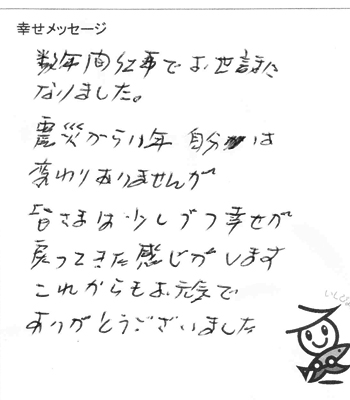 幸せメッセージ
数年間仕事でお世話に
なりました。
震災から11年 自分は
変わりありませんが
皆さまは少しづつ幸せが
戻ってきた感じがします
これからもお元気で
ありがとうございました